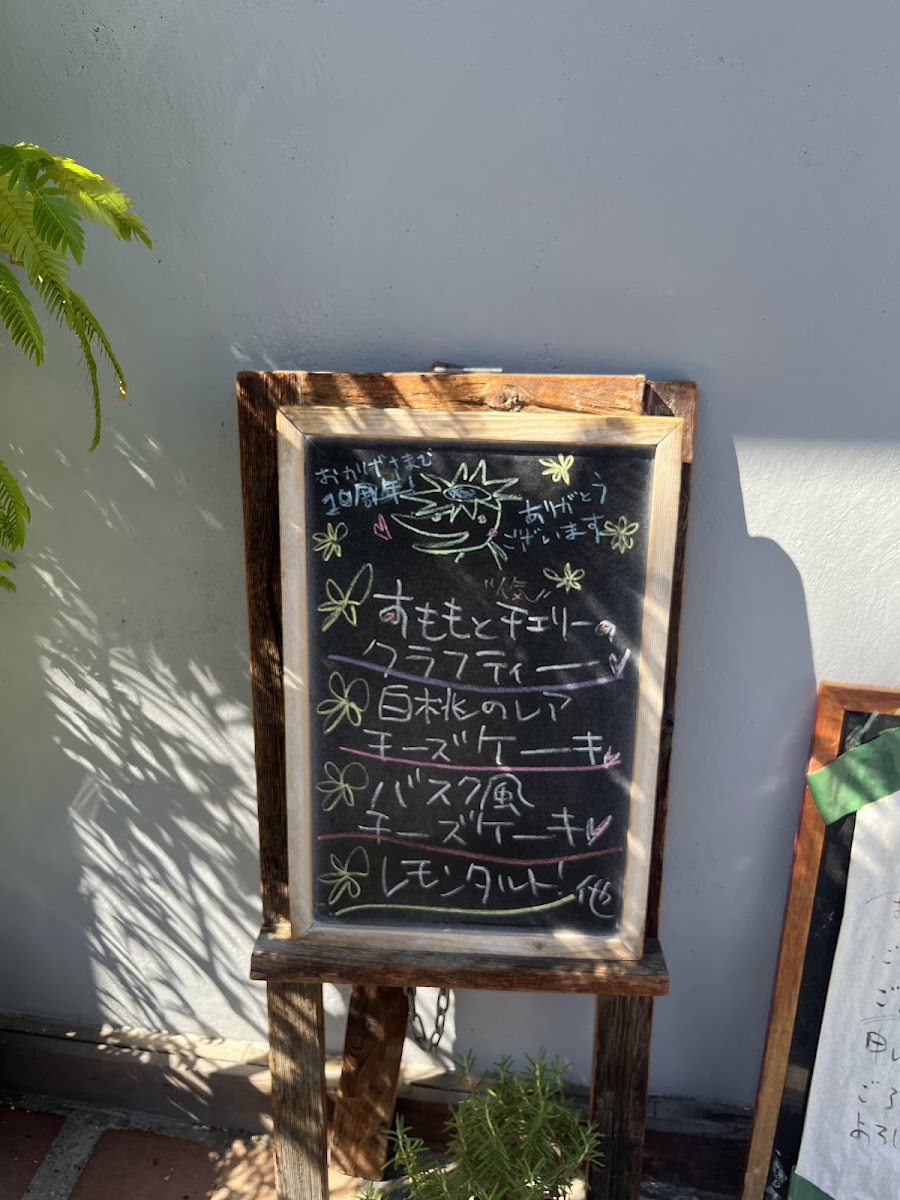 おかげさまで
10周年!
ありがとう
ございます
"人気"
すももとチェリーの
クラフティー
白桃のレア
チーズケーキ
バスク風
チーズケーキ
レモンタルト!他
ご
ご
用い
ご
よろし